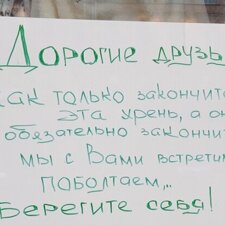 Дорогие друзь
как только закончит
эта хрень, а он
обязательно закончит
мы с Вами встретим
поболтаем,..
Берегите себя!